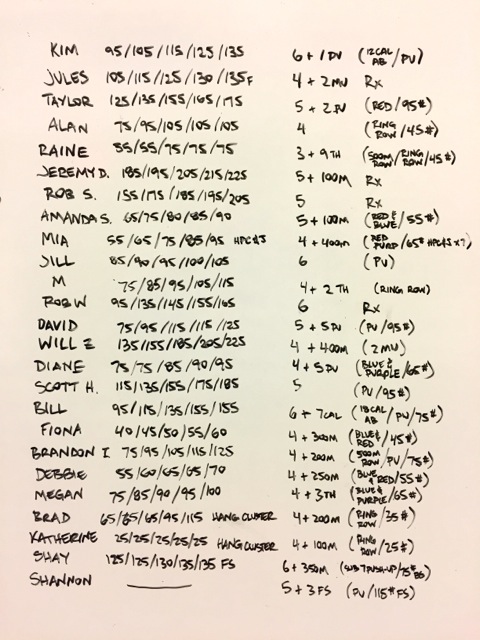 KIM 95/105/115/125/135 6 + 1 PU (12CAL AB/PU)
JULES 105/115/125/130/135F 4 + 2MU Rx
TAYLOR 125/135/155/165/175 5 + 2PU (RED/95#)
ALAN 75/95/105/105/105 4 (RING ROW/45#)
RAINE 55/55/75/75/75 3 + 9TH (500M ROW/RING ROW/45#)
JEREMY D. 185/195/205/215/225 5 + 100M Rx
ROB S. 155/175/185/195/205 5 Rx
AMANDA S. 65/75/80/85/90 5 + 100M (RED & BLUE/55#)
MIA 55/65/75/85/95 4 + 400M (RED PURP/65#
JILL 85/90/95/100/105 6 (PU)
M 75/85/95/105/115 4 + 2TH (RING ROW)
ROB W 95/135/145/155/165 6 Rx
DAVID 75/95/115/115/125 5 + 5PU (PU/95#)
WILL Z 135/155/185/205/225 4 + 400M (2MU)
DIANE 75/75/85/90/95 4 + 5PU (BLUE & PURPLE/65#)
SCOTT H. 115/135/155/175/185 5 (PU/95#)
BILL 95/115/135/155/155 6 + 7CAL (18CAL AB/PU/75#)
FIONA 40/45/50/55/60 4 + 300M (BLUE & RED/45#)
BRANDON I 75/95/105/115/125 4 + 200M (500M ROW/PU/75#)
DEBBIE 55/60/65/65/70 4 + 250M (BLUE & RED/55#)
MEGAN 75/85/90/95/100 4 + 3TH (BLUE & PURPLE/65#)
BRAD 65/85/65/95/115 HANG CLUSTER 4 + 200M (RING ROW/35#)
KATHERINE 25/25/25/25/25 HANG CLUSTER 4 + 100M (RING ROW/25#)
SHAY 125/125/130/135/135 FS 6 + 350M (SUB 7 PUSH-UP/75# BS)
SHANNON 5 + 3FS (PU/115# FS)